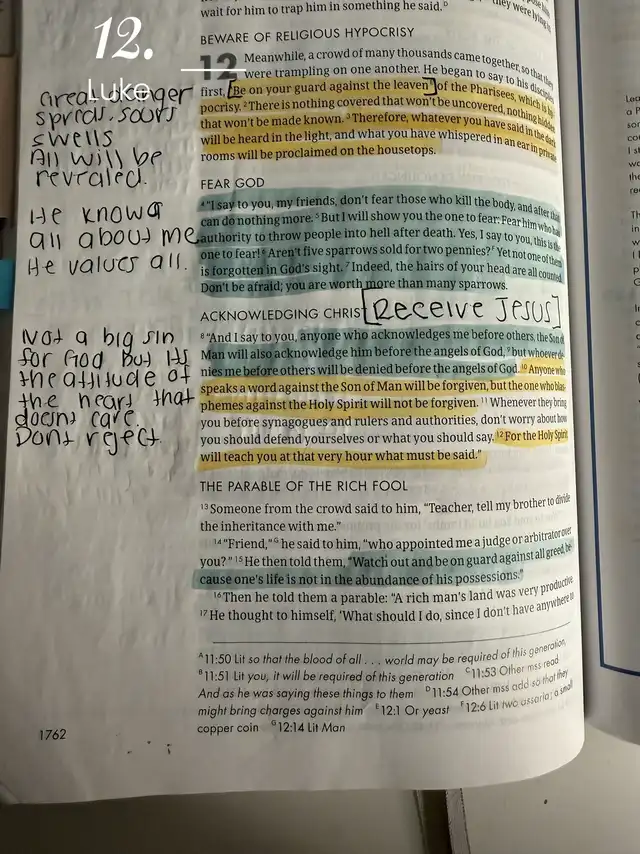 12.
Luke
wait for him to trap him in something he said.ᴰ
they were lying in
BEWARE OF RELIGIOUS HYPOCRISY
12 Meanwhile, a crowd of many thousands came together, so that they
were trampling on one another. He began to say to his disciples
first, [Be on your guard against the leavenᴱ] of the Pharisees, which is hy-
pocrisy. ² There is nothing covered that won't be uncovered, nothing hidden
that won't be made known. ³ Therefore, whatever you have said in the dark
will be heard in the light, and what you have whispered in an ear in private
rooms will be proclaimed on the housetops.
Great danger
spreads. sours
swells
All will be
revealed.
FEAR GOD
⁴ “I say to you, my friends, don't fear those who kill the body, and after that
can do nothing more. ⁵ But I will show you the one to fear: Fear him who has
authority to throw people into hell after death. Yes, I say to you, this is the
one to fear! ⁶ Aren't five sparrows sold for two pennies?ᶠ Yet not one of them
is forgotten in God's sight. ⁷ Indeed, the hairs of your head are all counted.
Don't be afraid; you are worth more than many sparrows.
He knows
all about me
He values all.
ACKNOWLEDGING CHRIST [Receive JESUS]
⁸ “And I say to you, anyone who acknowledges me before others, the Son of
Man will also acknowledge him before the angels of God, ⁹ but whoever de-
nies me before others will be denied before the angels of God. ¹⁰ Anyone who
speaks a word against the Son of Man will be forgiven, but the one who blas-
phemes against the Holy Spirit will not be forgiven. ¹¹ Whenever they bring
you before synagogues and rulers and authorities, don't worry about how
you should defend yourselves or what you should say. ¹² For the Holy Spirit
will teach you at that very hour what must be said.”
Not a big sin
for God but its
the attitude of
the heart that
doesnt care.
Dont reject.
THE PARABLE OF THE RICH FOOL
¹³ Someone from the crowd said to him, “Teacher, tell my brother to divide
the inheritance with me.”
¹⁴ “Friend,”ᴳ he said to him, “who appointed me a judge or arbitrator over
you?” ¹⁵ He then told them, “Watch out and be on guard against all greed, be-
cause one's life is not in the abundance of his possessions.”
¹⁶ Then he told them a parable: “A rich man's land was very productive.
¹⁷ He thought to himself, ‘What should I do, since I don't have anywhere to
ᴬ 11:50 Lit so that the blood of all . . . world may be required of this generation
ᴮ 11:51 Lit you, it will be required of this generation ᶜ 11:53 Other mss read
And as he was saying these things to them ᴰ 11:54 Other mss add so that they
might bring charges against him ᴱ 12:1 Or yeast ᶠ 12:6 Lit two assaria; a small
copper coin ᴳ 12:14 Lit Man
1762